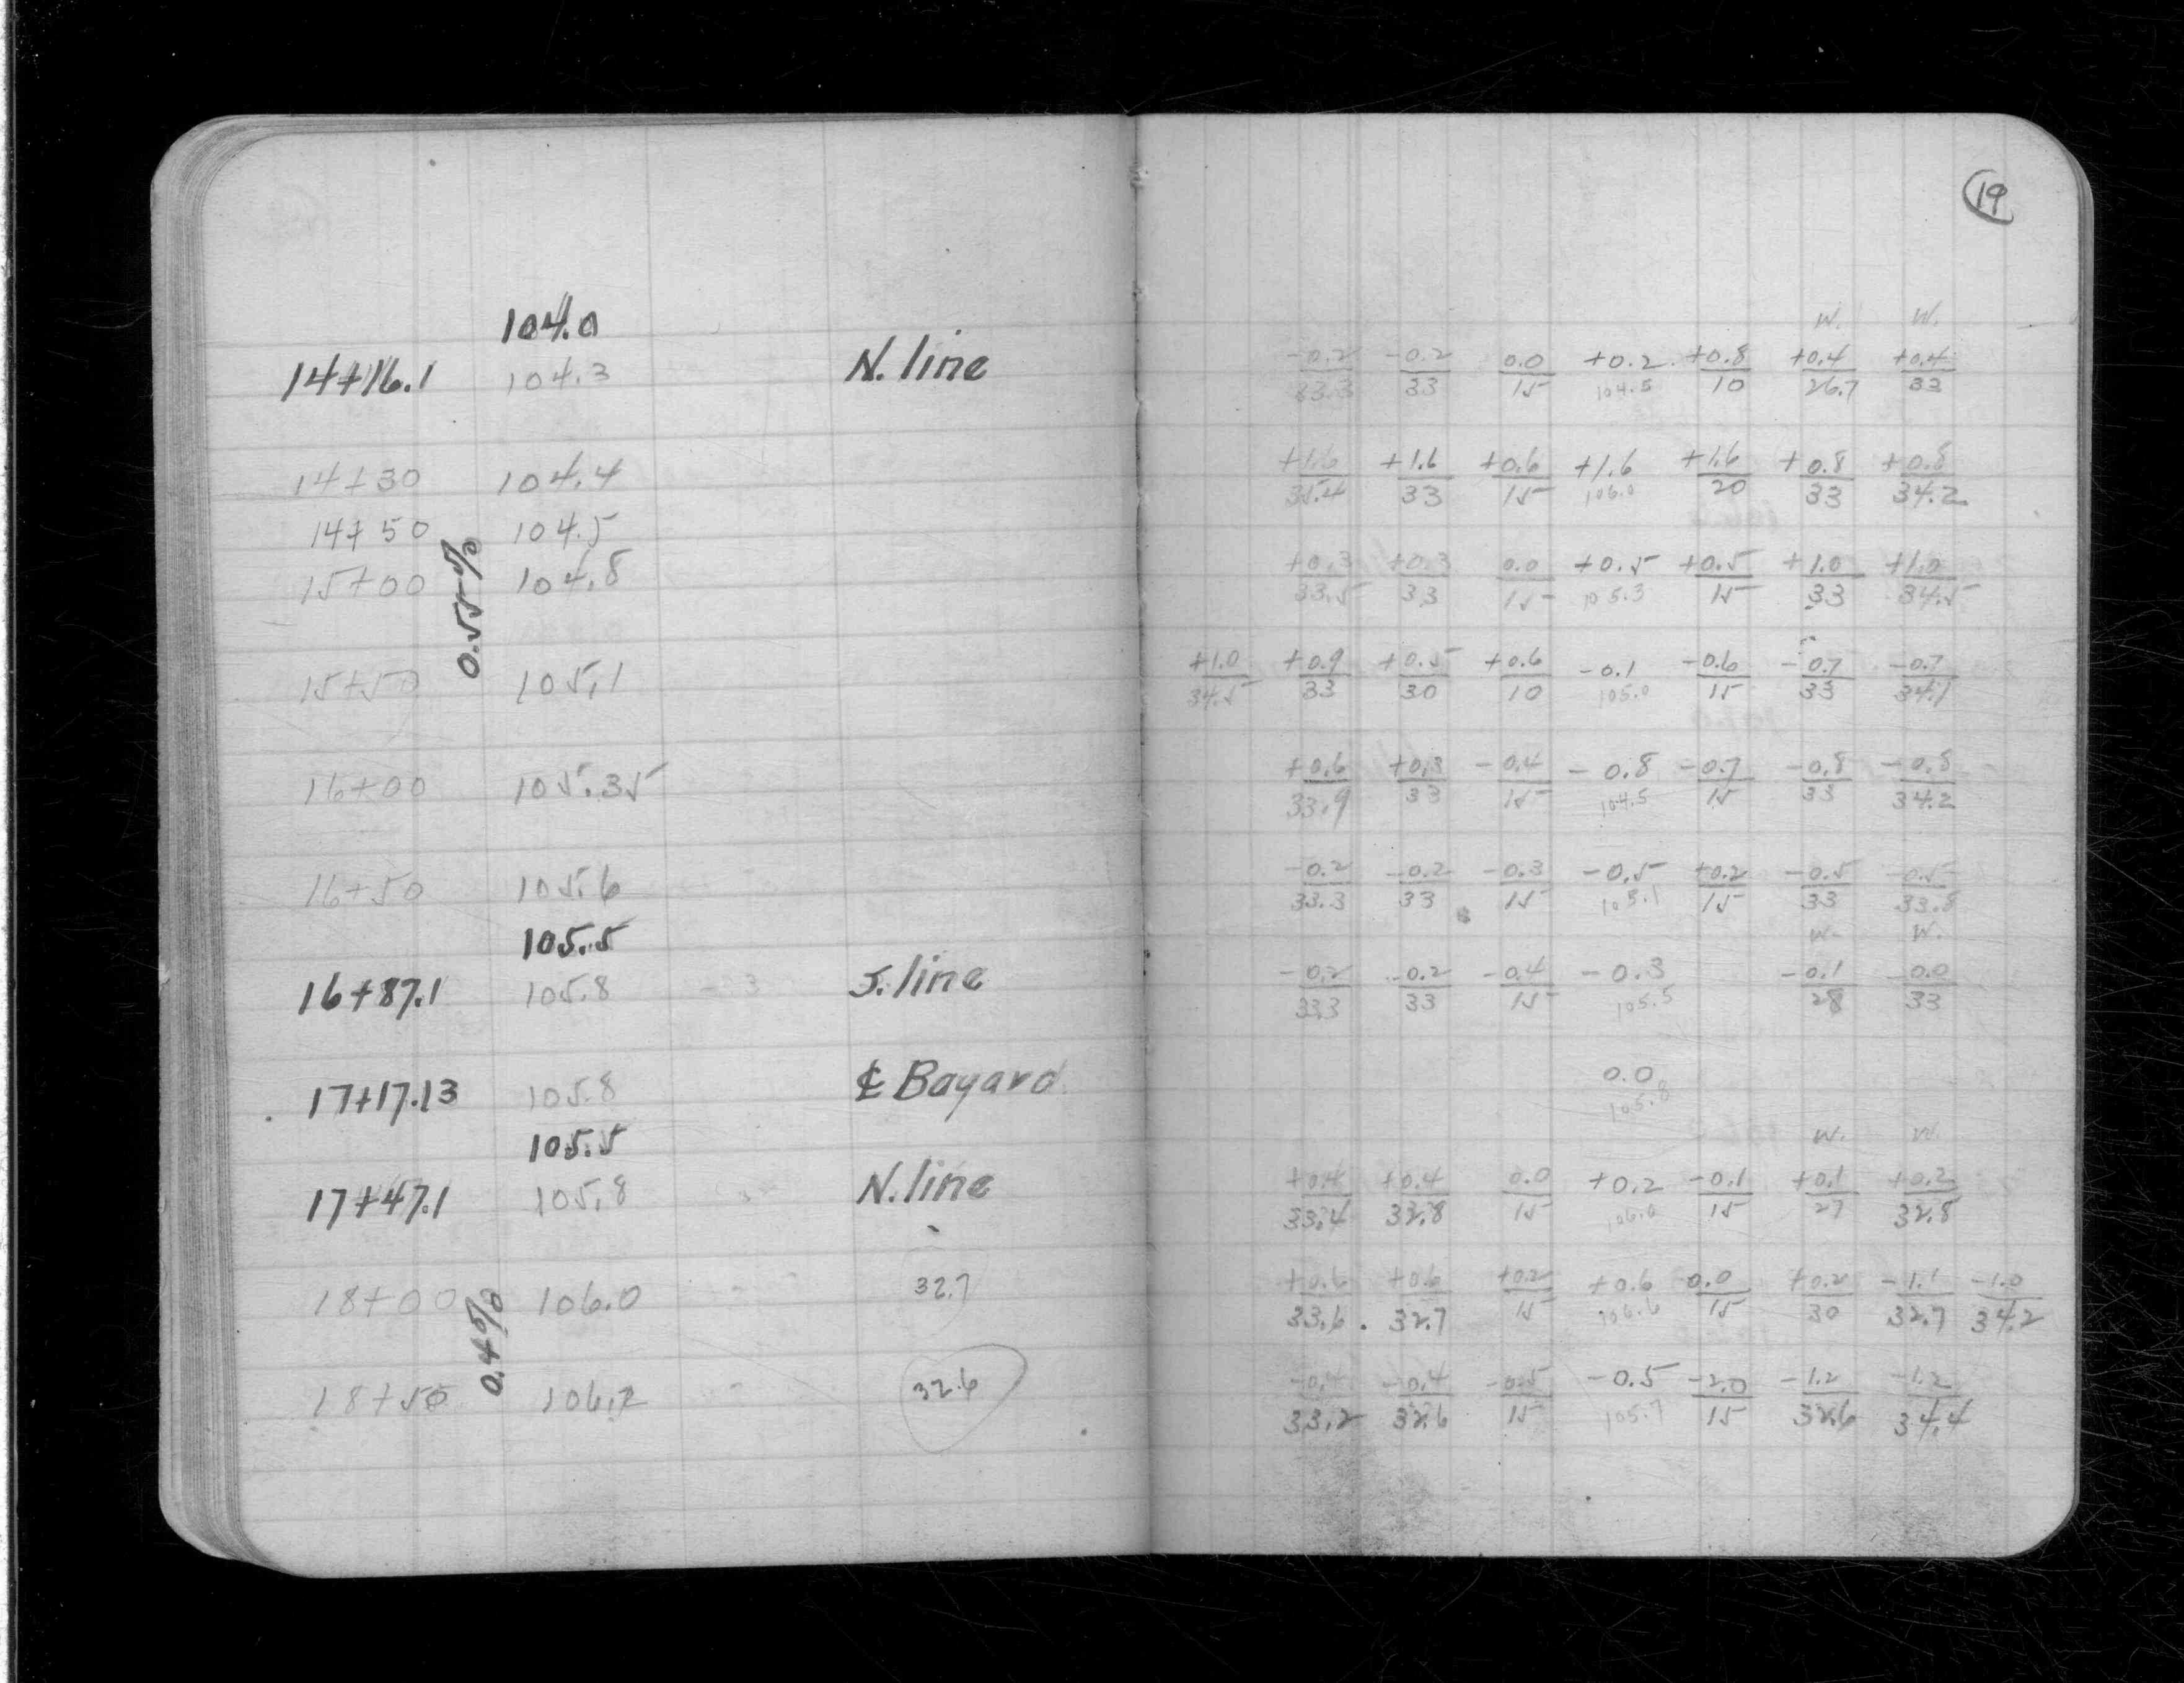 19
104.0
W. W.
14+16.1 104.3 N. line -0.2/33.3 -0.2/33 0.0/15 +0.2 104.5 +0.8/10 +0.4/26.7 +0.4/33
14+30 104.4 +1.6/35.4 +1.6/33 +0.6/15 +1.6 106.0 +1.6/20 +0.8/33 +0.8/34.2
14+50 104.5
0.55%
15+00 104.8 +0.3/33.5 +0.3/33 0.0/15 +0.5 105.3 +0.5/15 +1.0/33 +1.0/34.5
15+50 105.1 +1.0/34.5 +0.9/33 +0.5/30 +0.6/10 -0.1 105.0 -0.6/15 -0.7/33 -0.7/34.1
16+00 105.35 +0.6/33.9 +0.3/33 -0.4/15 -0.8 104.5 -0.7/15 -0.8/33 -0.8/34.2
16+50 105.6 -0.2/33.3 -0.2/33 -0.3/15 -0.5 105.1 +0.2/15 -0.5/33 -0.5/33.8
105.5 W. W.
16+87.1 105.8 S. line -0.2/33.3 -0.2/33 -0.4/15 -0.3 105.5 -0.1/28 -0.0/33
17+17.13 105.8 ℄ Bayard 0.0 105.8
105.5 W. W.
17+47.1 105.8 N. line +0.4/33.4 +0.4/32.8 0.0/15 +0.2 106.0 -0.1/15 +0.1/27 +0.2/32.8
18+00 106.0 32.7 +0.6/33.6 +0.6/32.7 +0.2/15 +0.6 106.6 0.0/15 +0.2/30 -1.1/32.7 -1.0/34.2
0.4%
18+50 106.2 32.6 -0.4/33.2 -0.4/32.6 -0.5/15 -0.5 105.7 -2.0/15 -1.2/32.6 -1.2/34.4